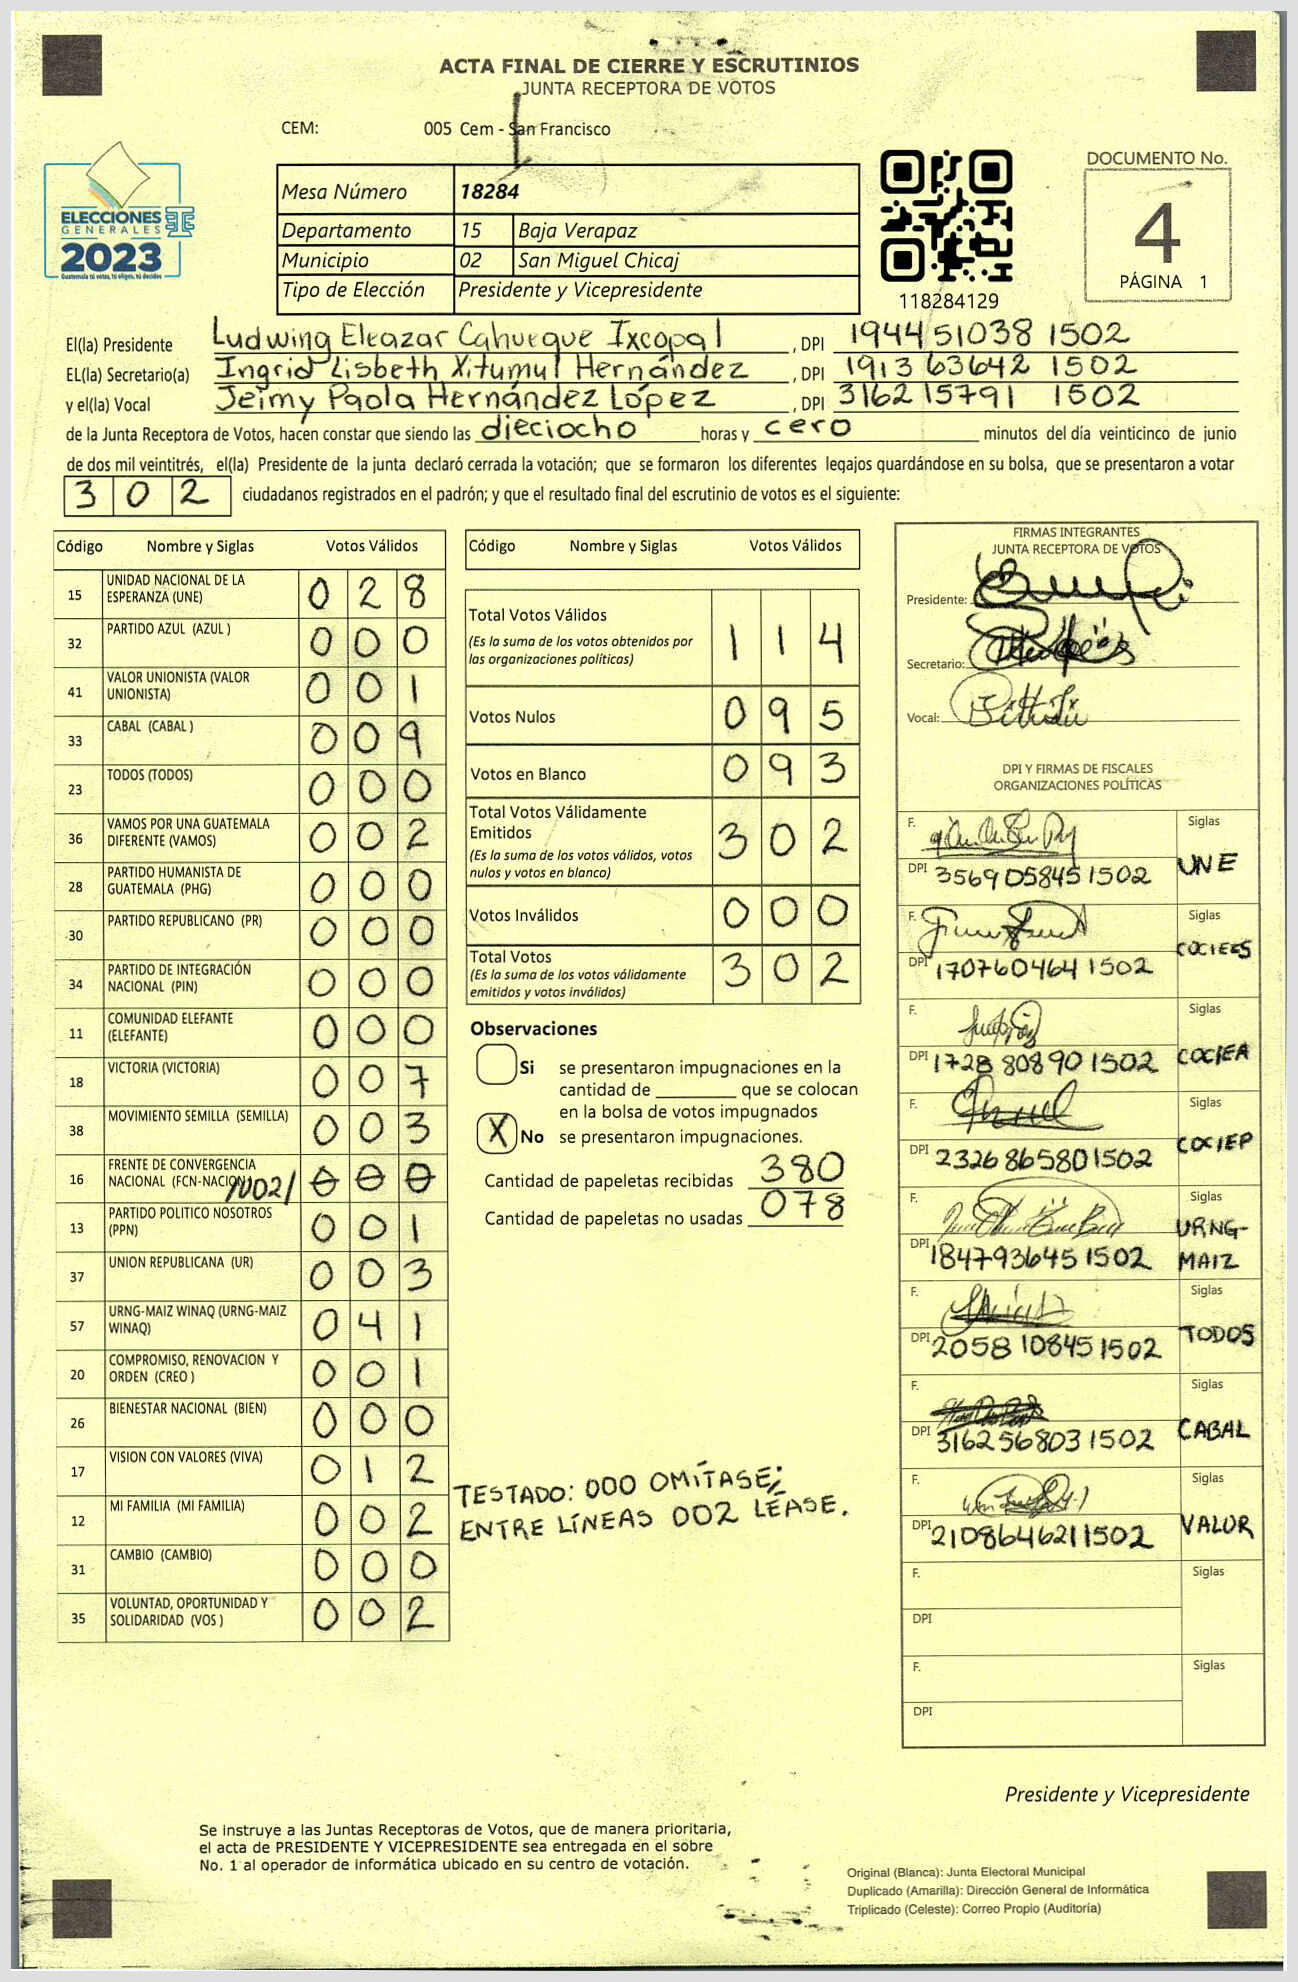 ACTA FINAL DE CIERRE Y ESCRUTINIOS
JUNTA RECEPTORA DE VOTOS
CEM: 005 Cem - San Francisco
ELECCIONES
GENERALES
2023
Guatemala tú votas, tú eliges, tú decides
Mesa Número 18284
Departamento 15 Baja Verapaz
Municipio 02 San Miguel Chicaj
Tipo de Elección Presidente y Vicepresidente
118284129
DOCUMENTO No.
4
PÁGINA 1
El(la) Presidente Ludwing Eleazar Cahueque Ixcopal , DPI 194451038 1502
EL(la) Secretario(a) Ingrid Lisbeth Xitumul Hernández , DPI 1913 63642 1502
y el(la) Vocal Jeimy Paola Hernández López , DPI 3162 15791 1502
de la Junta Receptora de Votos, hacen constar que siendo las dieciocho horas y cero minutos del día veinticinco de junio
de dos mil veintitrés, el(la) Presidente de la junta declaró cerrada la votación; que se formaron los diferentes legajos guardándose en su bolsa, que se presentaron a votar
302 ciudadanos registrados en el padrón; y que el resultado final del escrutinio de votos es el siguiente:
Código Nombre y Siglas Votos Válidos
15 UNIDAD NACIONAL DE LA ESPERANZA (UNE) 028
32 PARTIDO AZUL (AZUL ) 000
41 VALOR UNIONISTA (VALOR UNIONISTA) 001
33 CABAL (CABAL ) 009
23 TODOS (TODOS) 000
36 VAMOS POR UNA GUATEMALA DIFERENTE (VAMOS) 002
28 PARTIDO HUMANISTA DE GUATEMALA (PHG) 000
30 PARTIDO REPUBLICANO (PR) 000
34 PARTIDO DE INTEGRACIÓN NACIONAL (PIN) 000
11 COMUNIDAD ELEFANTE (ELEFANTE) 000
18 VICTORIA (VICTORIA) 007
38 MOVIMIENTO SEMILLA (SEMILLA) 003
16 FRENTE DE CONVERGENCIA NACIONAL (FCN-NACION) /002/ 000
13 PARTIDO POLITICO NOSOTROS (PPN) 001
37 UNION REPUBLICANA (UR) 003
57 URNG-MAIZ WINAQ (URNG-MAIZ WINAQ) 041
20 COMPROMISO, RENOVACION Y ORDEN (CREO ) 001
26 BIENESTAR NACIONAL (BIEN) 000
17 VISION CON VALORES (VIVA) 012
12 MI FAMILIA (MI FAMILIA) 002
31 CAMBIO (CAMBIO) 000
35 VOLUNTAD, OPORTUNIDAD Y SOLIDARIDAD (VOS ) 002
Código Nombre y Siglas Votos Válidos
Total Votos Válidos 114
(Es la suma de los votos obtenidos por
las organizaciones políticas)
Votos Nulos 095
Votos en Blanco 093
Total Votos Válidamente
Emitidos 302
(Es la suma de los votos válidos, votos
nulos y votos en blanco)
Votos Inválidos 000
Total Votos 302
(Es la suma de los votos válidamente
emitidos y votos inválidos)
Observaciones
Si se presentaron impugnaciones en la
cantidad de ________ que se colocan
en la bolsa de votos impugnados
X No se presentaron impugnaciones.
Cantidad de papeletas recibidas 380
Cantidad de papeletas no usadas 078
TESTADO: 000 OMÍTASE;
ENTRE LÍNEAS 002 LÉASE.
FIRMAS INTEGRANTES
JUNTA RECEPTORA DE VOTOS
Presidente:
Secretario:
Vocal:
DPI Y FIRMAS DE FISCALES
ORGANIZACIONES POLÍTICAS
F. Siglas
DPI 3569058451502 UNE
F. Siglas
DPI 1707604641502 COCIEES
F. Siglas
DPI 1728 808901502 COCIEA
F. Siglas
DPI 2326865801502 COCIEP
F. Siglas
DPI 1847936451502 URNG-MAIZ
F. Siglas
DPI 2058108451502 TODOS
F. Siglas
DPI 3162568031502 CABAL
F. Siglas
DPI 2108646211502 VALOR
F. Siglas
DPI
F. Siglas
DPI
Presidente y Vicepresidente
Se instruye a las Juntas Receptoras de Votos, que de manera prioritaria,
el acta de PRESIDENTE Y VICEPRESIDENTE sea entregada en el sobre
No. 1 al operador de informática ubicado en su centro de votación.
Original (Blanca): Junta Electoral Municipal
Duplicado (Amarilla): Dirección General de Informática
Triplicado (Celeste): Correo Propio (Auditoría)